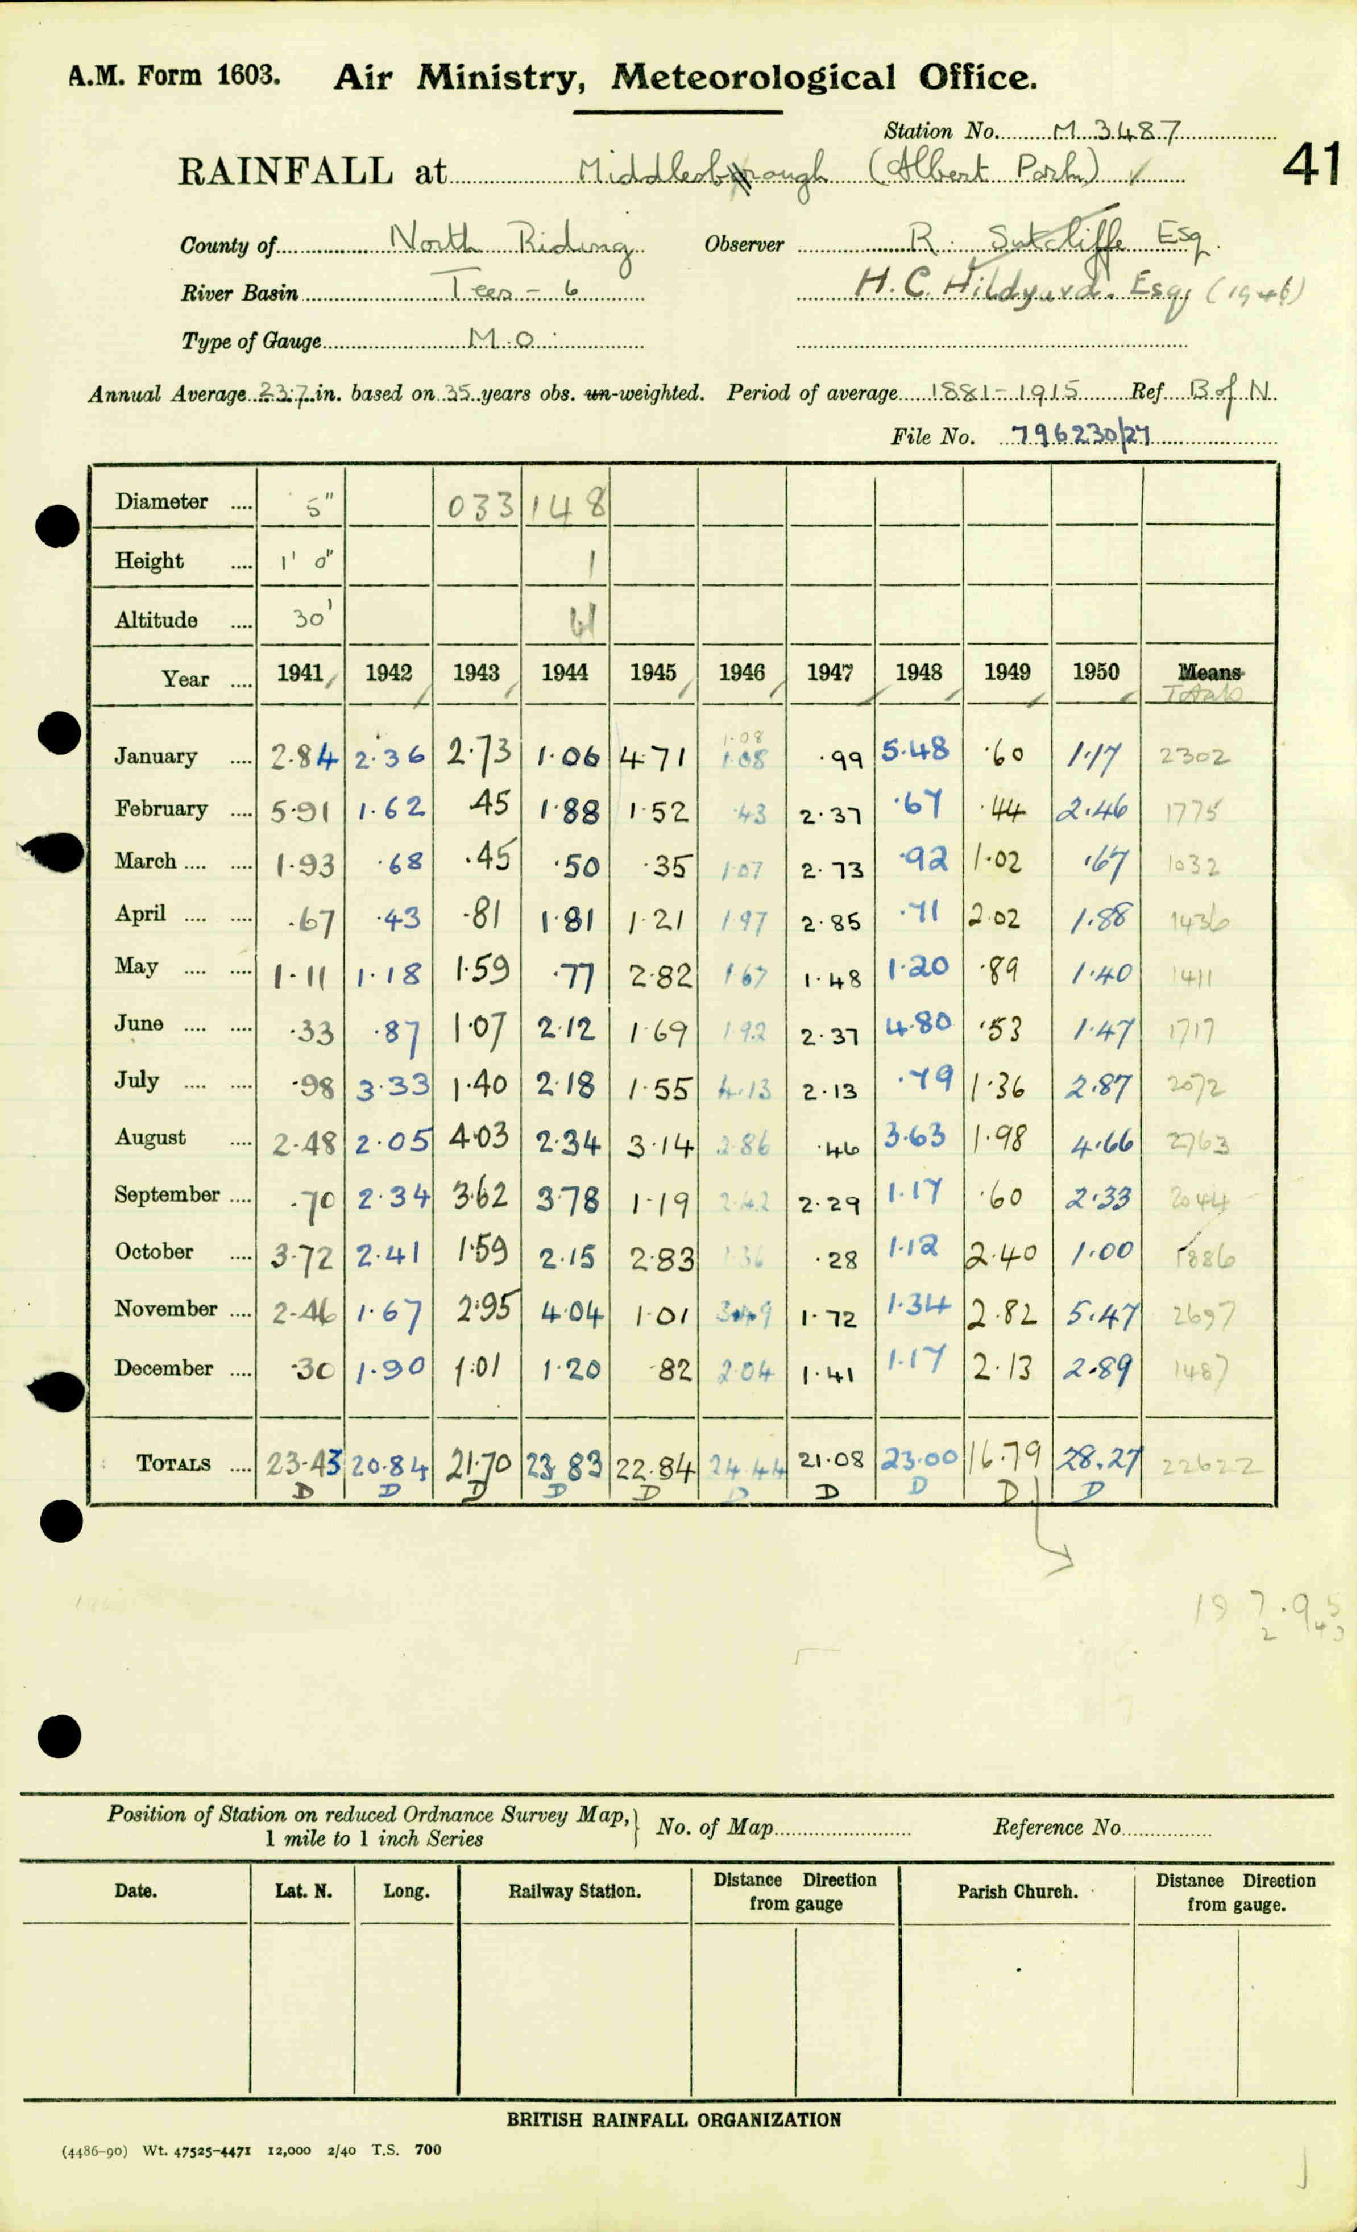 A.M. Form 1603. Air Ministry, Meteorological Office.
Station No. M 3487
41
RAINFALL at Middlesbrough (Albert Park) ✓
County of North Riding Observer R. Sutcliffe Esq.
River Basin Tees - 6 H. C. Hildyard. Esq (1946)
Type of Gauge M.O.
Annual Average 23.7 in. based on 35 years obs. un-weighted. Period of average 1881-1915 Ref B of N.
File No. 796230/27
Diameter .... 5" 033 148
Height .... 1' 0" 1
Altitude .... 30' 61
Year .... 1941 1942 1943 1944 1945 1946 1947 1948 1949 1950 Means
Totals
1.08
January .... 2.84 2.36 2.73 1.06 4.71 1.08 .99 5.48 .60 1.17 2302
February .... 5.91 1.62 .45 1.88 1.52 .43 2.37 .67 .44 2.46 1775
March .... .... 1.93 .68 .45 .50 .35 1.07 2.73 .92 1.02 .67 1032
April .... .... .67 .43 .81 1.81 1.21 1.97 2.85 .71 2.02 1.88 1436
May .... .... 1.11 1.18 1.59 .77 2.82 1.67 1.48 1.20 .89 1.40 1411
June .... .... .33 .87 1.07 2.12 1.69 1.92 2.37 4.80 .53 1.47 1717
July .... .... .98 3.33 1.40 2.18 1.55 4.13 2.13 .79 1.36 2.87 2072
August .... 2.48 2.05 4.03 2.34 3.14 2.86 .46 3.63 1.98 4.66 2763
September .... .70 2.34 3.62 3.78 1.19 2.42 2.29 1.17 .60 2.33 2044
October .... 3.72 2.41 1.59 2.15 2.83 1.36 .28 1.12 2.40 1.00 1886
November .... 2.46 1.67 2.95 4.04 1.01 3.49 1.72 1.34 2.82 5.47 2697
December .... .30 1.90 1.01 1.20 .82 2.04 1.41 1.17 2.13 2.89 1487
TOTALS .... 23.43 20.84 21.70 23.83 22.84 24.44 21.08 23.00 16.79 28.27 22622
D D D D D D D D D D
Position of Station on reduced Ordnance Survey Map, } No. of Map Reference No.
1 mile to 1 inch Series
Date. Lat. N. Long. Railway Station. Distance Direction from gauge Parish Church. Distance Direction from gauge.
BRITISH RAINFALL ORGANIZATION
(4486-90) Wt. 47525-4471 12,000 2/40 T.S. 700